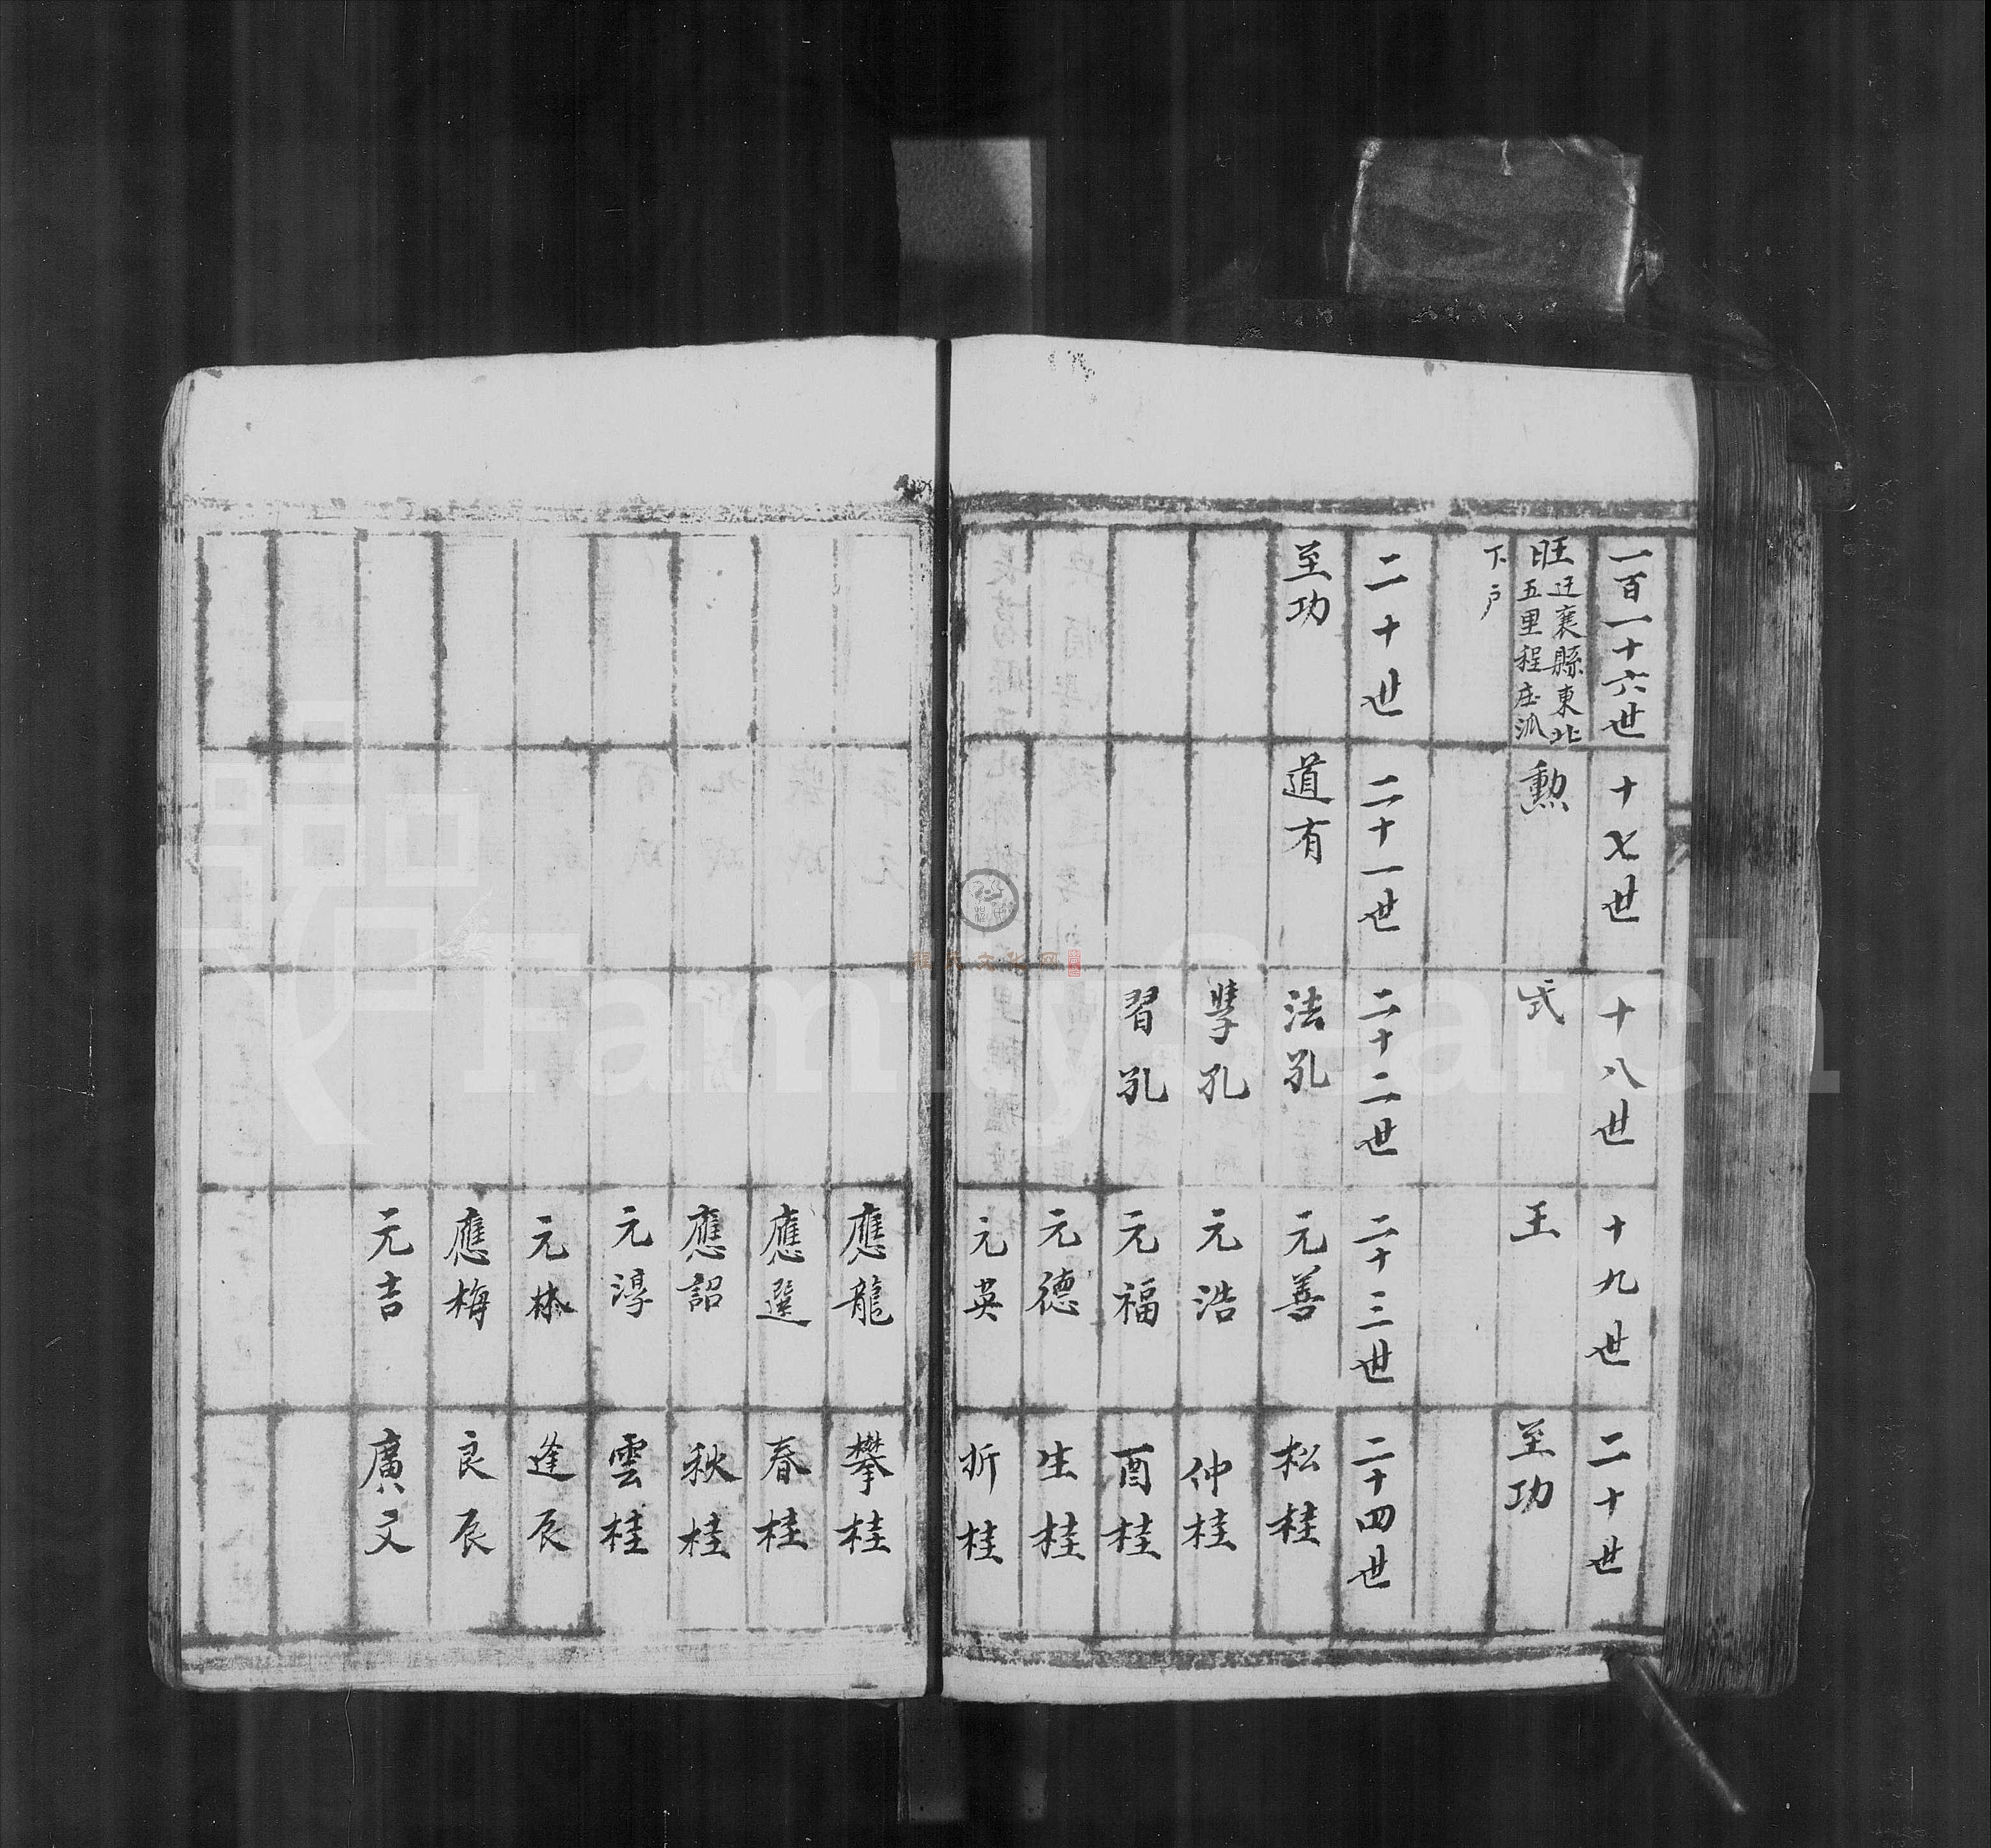 一百一十六世
十七世
十八世
十九世
二十世
旺
迁襄縣東北
五里程庄派
下戶
勲
式
王
至功
二十世
二十一世
二十二世
二十三世
二十四世
至功
道有
法孔
元善
松桂
孔
元浩
仲桂
習孔
元福
酉桂
元德
生桂
元英
折桂
應龍
攀桂
應選
春桂
應詔
秋桂
元淳
雲桂
元林
逢辰
應梅
良辰
元吉
廣文
FamilySearch